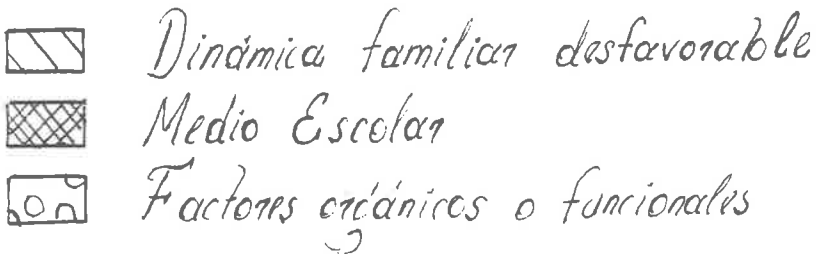 Dinámica familiar desfavorable
Medio Escolar
Factores orgánicos o funcionales